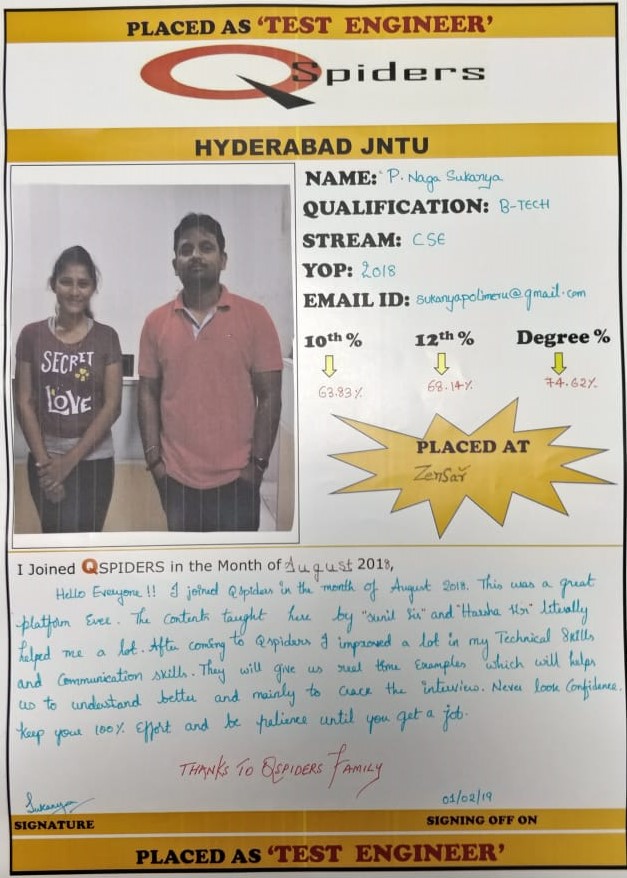 PLACED AS ‘TEST ENGINEER’
QSpiders
HYDERABAD JNTU
NAME: P. Naga Sukanya
QUALIFICATION: B-TECH
STREAM: CSE
YOP: 2018
EMAIL ID: sukanyapolimeru@gmail.com
10th % 12th % Degree %
63.83% 68.14% 74.62%
SECRET
LOVE
PLACED AT
Zensar
I Joined QSPIDERS in the Month of August 2018,
Hello Everyone!! I joined Qspiders in the month of August 2018. This was a great
platform Ever. The contents taught here by "Sunil Sir" and "Harsha Sir" literally
helped me a lot. After coming to Qspiders I improved a lot in my Technical Skills
and Communication skills. They will give us real time Examples which will helps
us to understand better and mainly to crack the interview. Never loose Confidence.
keep your 100% Effort and be patience until you get a job.
THANKS TO QSPIDERS FAMILY
Sukanya 01/02/19
SIGNATURE SIGNING OFF ON
PLACED AS ‘TEST ENGINEER’